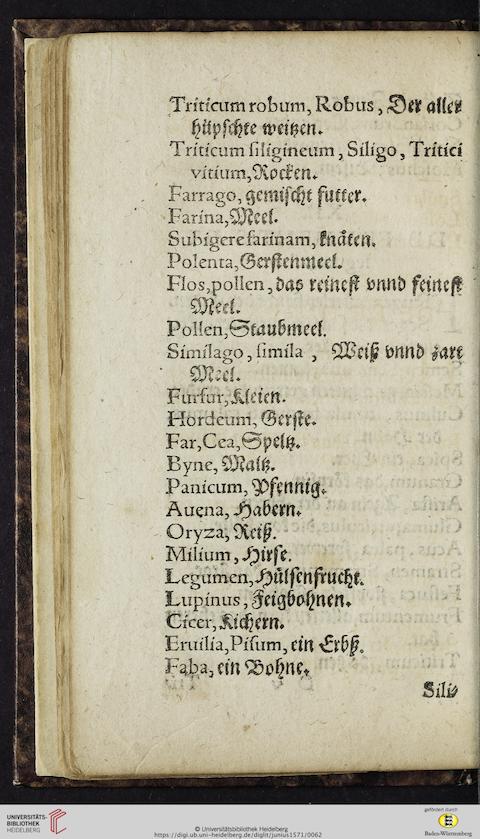 Triticum robum, Robus, Der aller
hüpschte weitzen.
Triticum siligineum, Siligo, Tritici
vitium, Rocken.
Farrago, gemischt futter.
Farina, Meel.
Subigere farinam, knåten.
Polenta, Gerstenmeel.
Flos, pollen, das reinest vnnd feinest
Meel.
Pollen, Staubmeel.
Similago, simila, Weiß vnnd zart
Meel.
Furfur, Kleien.
Hordeum, Gerste.
Far, Cea, Speltz.
Byne, Maltz.
Panicum, Pfennig.
Auena, Habern.
Oryza, Reiß.
Milium, Hirse.
Legumen, Hülsenfrucht.
Lupinus, Feigbohnen.
Cicer, Kichern.
Eruilia, Pisum, ein Erbß.
Faba, ein Bohne.
Sili-
UNIVERSITÄTS-
BIBLIOTHEK
HEIDELBERG
© Universitätsbibliothek Heidelberg
https://digi.ub.uni-heidelberg.de/diglit/junius1571/0062
gefördert durch
Baden-Württemberg